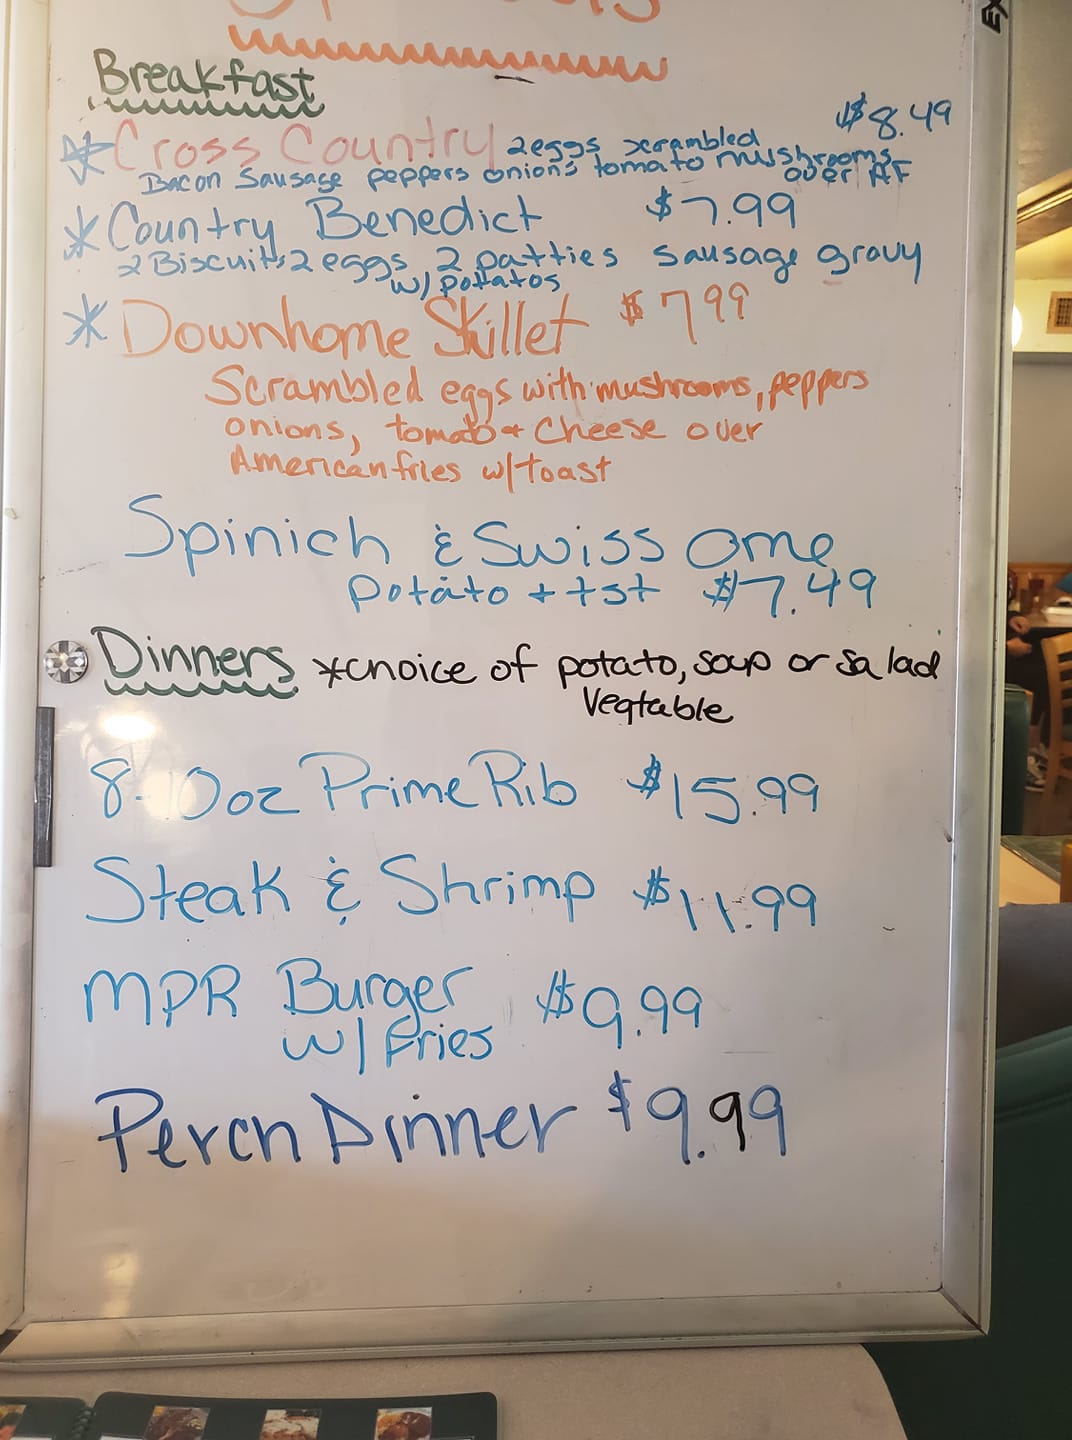 Specials
Breakfast
$8.49
*Cross Country 2 eggs scrambled
Bacon Sausage peppers onions tomato mushrooms
over AF
*Country Benedict $7.99
2 Biscuits 2 eggs 2 patties sausage gravy
w/ pottatos
*Downhome Skillet $799
Scrambled eggs with mushrooms, peppers
onions, tomato + Cheese over
American fries w/toast
Spinich & Swiss Ome
potato + tst $7.49
Dinners *choice of potato, soup or salad
Vegtable
8-10oz Prime Rib $15.99
Steak & Shrimp $11.99
MPR Burger $9.99
w/ Fries
Perch Dinner $9.99
EX